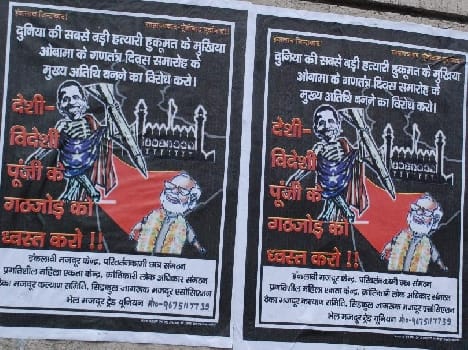 इंकलाब जिन्दाबाद!
साम्राज्यवाद-पूंजीवाद मुर्दाबाद!
दुनिया की सबसे बड़ी हत्यारी हुकूमत के मुखिया
ओबामा के गणतंत्र-दिवस समारोह के
मुख्य अतिथि बनने का विरोध करो।
देशी-
विदेशी
पूंजी के
गठजोड़ को
ध्वस्त करो !!
इंकलाबी मजदूर केन्द्र, परिवर्तनकामी छात्र संगठन
प्रगतिशील महिला एकता केन्द्र, क्रांतिकारी लोक अधिकार संगठन
ठेका मजदूर कल्याण समिति, सिडकुल जागरूक मजदूर एसोसिएशन
भेल मजदूर ट्रेड यूनियन मो०-9675117739
इंकलाब जिन्दाबाद!
साम्राज्यवाद-पूंजीवाद मुर्दाबाद!
दुनिया की सबसे बड़ी हत्यारी हुकूमत के मुखिया
ओबामा के गणतंत्र-दिवस समारोह के
मुख्य अतिथि बनने का विरोध करो।
देशी-
विदेशी
पूंजी के
गठजोड़ को
ध्वस्त करो !!
इंकलाबी मजदूर केन्द्र, परिवर्तनकामी छात्र संगठन
प्रगतिशील महिला एकता केन्द्र, क्रांतिकारी लोक अधिकार संगठन
ठेका मजदूर कल्याण समिति, सिडकुल जागरूक मजदूर एसोसिएशन
भेल मजदूर ट्रेड यूनियन मो०-9675117739